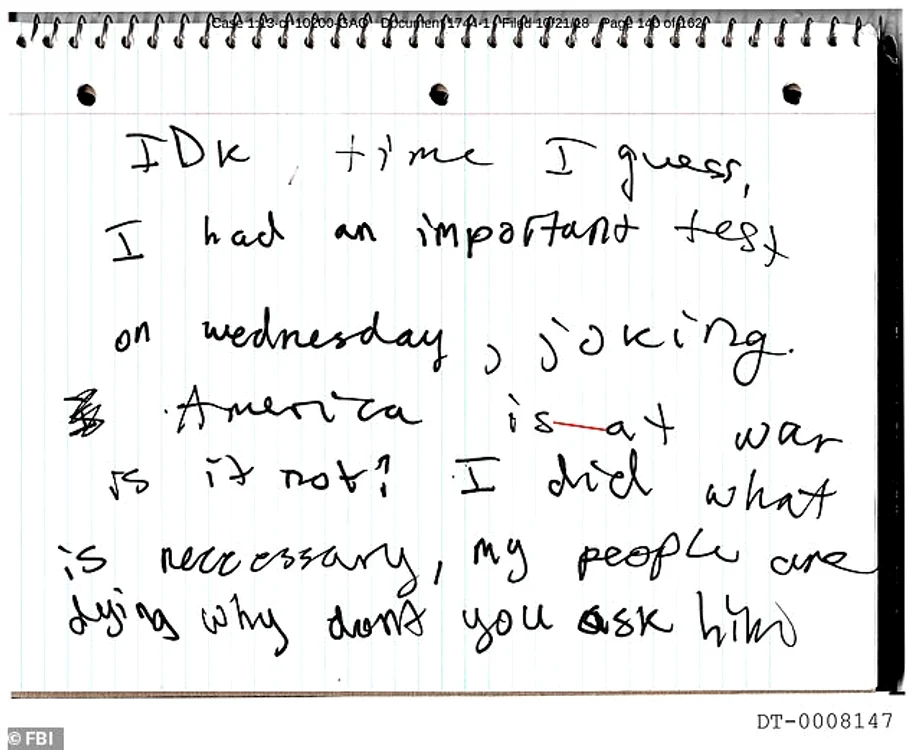 Document 1744-1 Filed 10/21/18 Page 140 of 162
IDK, time I guess,
I had an important test
on wednesday, joking.
America is at war
is it not? I did what
is neccessary, my people are
dying why dont you ask him
DT-0008147
© FBI